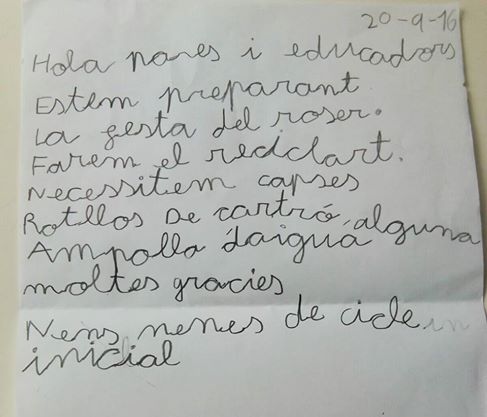 20-9-16
Hola pares i educadors
Estem preparant
La festa del roser.
Farem el reciclart.
Necessitem capses
Rotllos De cartró, alguna
Ampolla d'aigua
moltes gracies
Nens nenes de cicle in
inicial